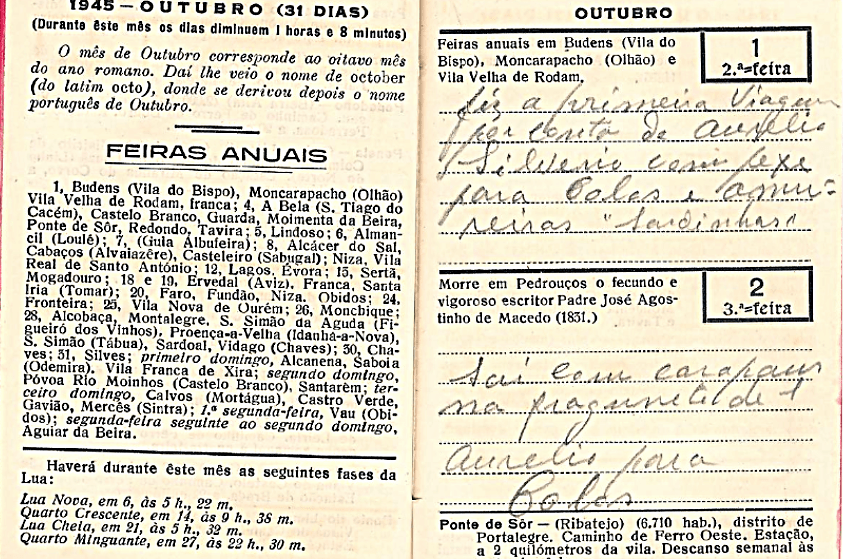 1945 — OUTUBRO (31 DIAS)
(Durante êste mês os dias diminuem 1 horas e 8 minutos)
O mês de Outubro corresponde ao oitavo mês
do ano romano. Daí lhe veio o nome de october
(do latim octo), donde se derivou depois o nome
português de Outubro.
FEIRAS ANUAIS
1, Budens (Vila do Bispo), Moncarapacho (Olhão)
Vila Velha de Rodam, franca; 4, A Bela (S. Tiago do
Cacém), Castelo Branco, Guarda, Moimenta da Beira,
Ponte de Sôr, Redondo, Tavira; 5, Lindoso; 6, Alman-
cil (Loulê); 7, (Guia Albufeira); 8, Alcácer do Sal,
Cabaços (Alvaiazêre), Casteleiro (Sabugal); Niza, Vila
Real de Santo António; 12, Lagos, Évora; 15, Sertã,
Mogadouro; 18 e 19, Ervedal (Aviz), Franca, Santa
Iria (Tomar); 20, Faro, Fundão, Niza, Obidos; 24,
Fronteira; 25, Vila Nova de Ourém; 26, Monchique;
28, Alcobaça, Montalegre, S. Simão da Aguda (Fi-
gueiró dos Vinhos), Proença-a-Velha (Idanha-a-Nova),
S. Simão (Tábua), Sardoal, Vidago (Chaves); 30, Cha-
ves; 31, Silves; primeiro domingo, Alcanena, Saboia
(Odemira), Vila Franca de Xira; segundo domingo,
Póvoa Rio Moinhos (Castelo Branco), Santarém; ter-
ceiro domingo, Calvos (Mortágua), Castro Verde,
Gavião, Mercês (Sintra); 1.ª segunda-feira, Vau (Obi-
dos); segunda-feira seguinte ao segundo domingo,
Aguiar da Beira.
Haverá durante êste mês as seguintes fases da
Lua:
Lua Nova, em 6, às 5 h., 22 m.
Quarto Crescente, em 14, às 9 h., 38 m.
Lua Cheia, em 21, às 5 h., 32 m.
Quarto Minguante, em 27, às 22 h., 30 m.
OUTUBRO
Feiras anuais em Budens (Vila do
Bispo), Moncarapacho (Olhão) e
Vila Velha de Rodam.
1
2.ª=feira
fiz a primeira Viagem
por conta do Aurelio
Silverio com pexe
para Colos e amu-
reiras "Sardinhas"
Morre em Pedrouços o fecundo e
vigoroso escritor Padre José Agos-
tinho de Macedo (1831.)
2
3.ª=feira
Saí com carapaus
na fragunete de
Aurelio para
Colos
Ponte de Sôr — (Ribatejo) (6.710 hab.), distrito de
Portalegre. Caminho de Ferro Oeste. Estação,
a 2 quilómetros da vila. Descanso semanal às